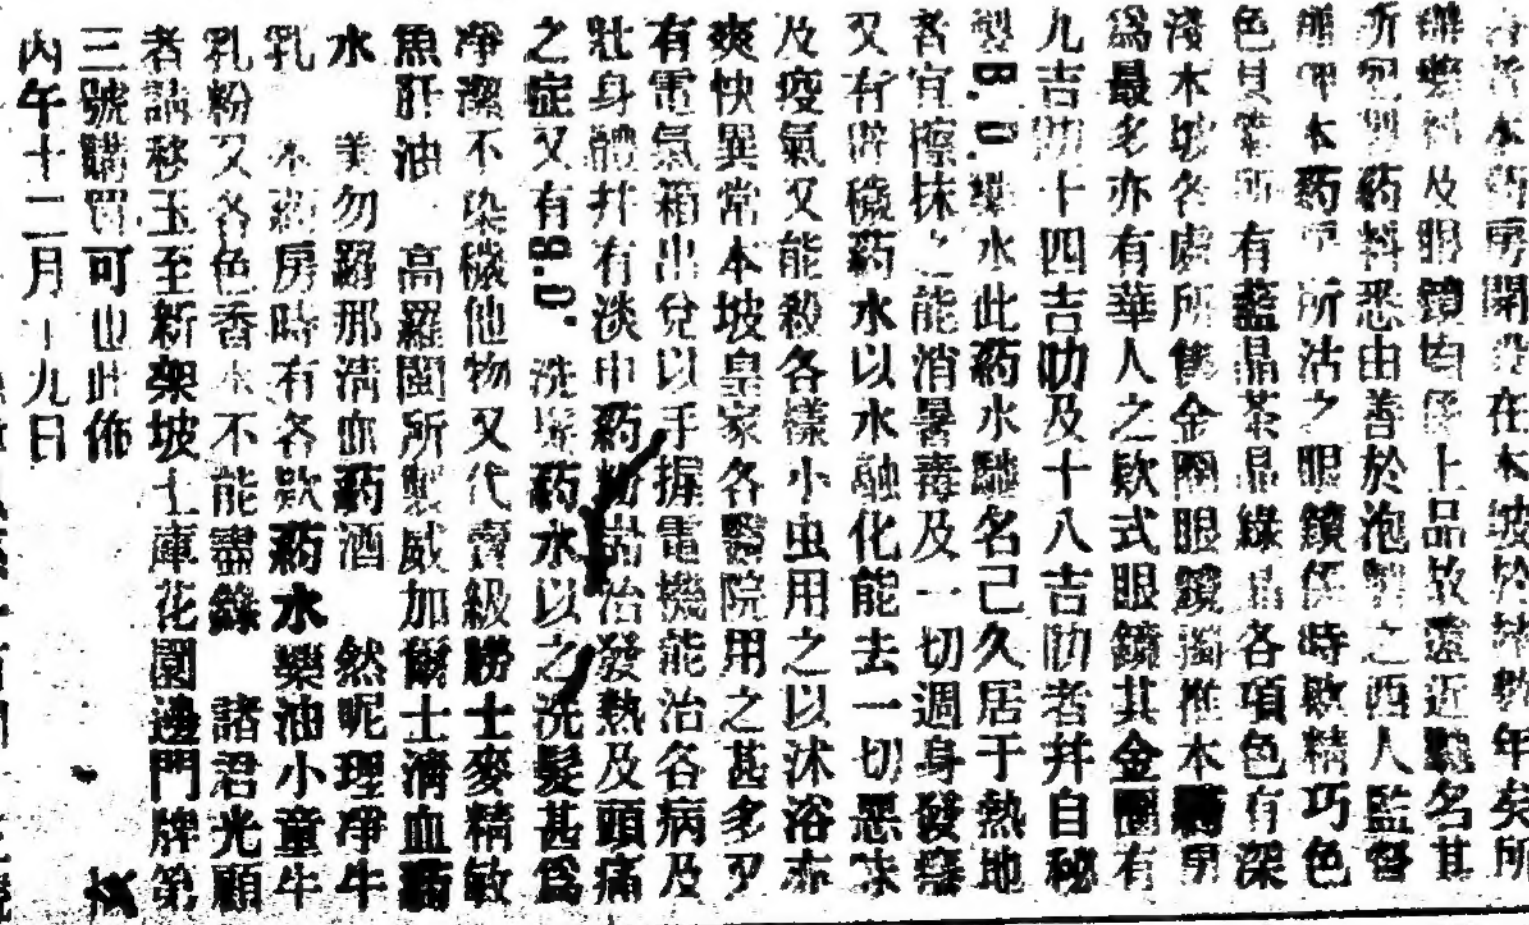 本药房開設在本坡於茲數年矣所
及眼鏡均係上品故遠近馳名其
所配制药料悉由善於泡製之西人監督
本药房所沽之眼鏡係時欵精巧色
色具備所有藍晶茶晶綠晶各項色有深
淺本坡各處所售金圈眼鏡獨推本药房
為最多亦有華人之欵式眼鏡其金圈有
九吉叻十四吉叻及十八吉叻者并自秘
製B.D.藥水此药水馳名已久居于熱地
者宜擦抹之能消暑毒及一切週身發癢
又有辟穢药水以水融化能去一切惡味
及疫氣又能殺各樣小虫用之以沐浴亦
爽快異常本坡皇家各醫院用之甚多又
有電氣箱出兌以手握電機能治各病及
壯身體并有淡巾药粉耑治發熱及頭痛
之症又有B.D.洗髮药水以之洗髮甚為
淨潔不染穢他物又代賣級勝士麥精敏
魚肝油 高羅閩所製威加爾士清血药
水 美勿羅那清血药酒 然呢理淨牛
乳 本药房時有各欵药水藥油小童牛
乳粉又各色香水不能盡錄 諸君光顧
者請移玉至新架坡士庫花園邊門牌第
三號購買可也此佈
丙午十二月十九日